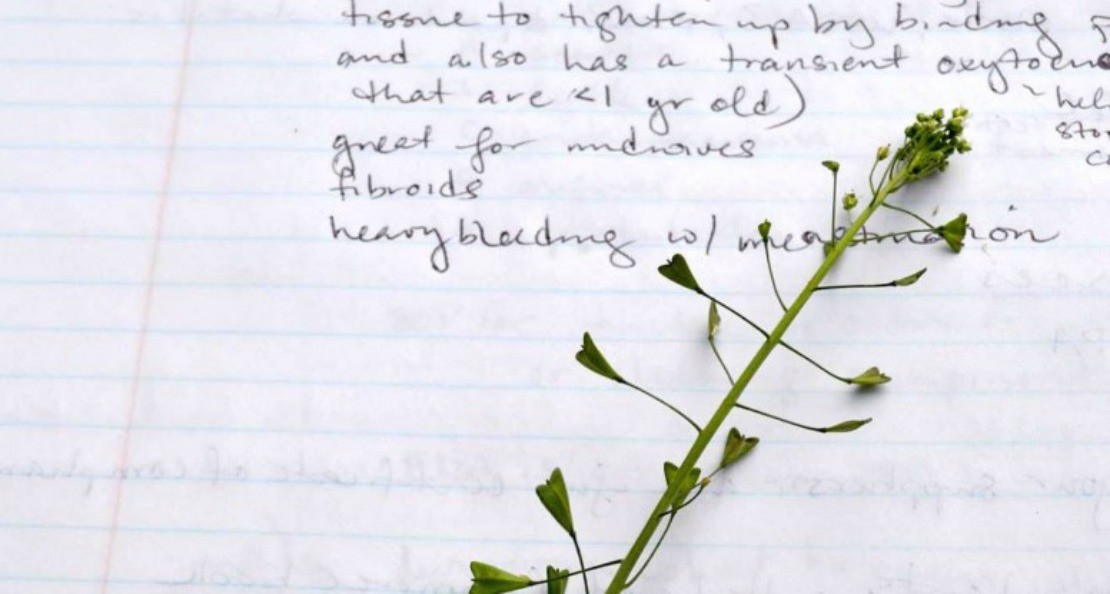 tissue to tighten up by binding
and also has a transient
that are <1 yr old)
great for midwives
fibroids
heavy bleeding w/ menstruation